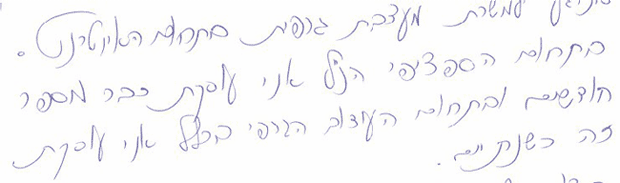 למשרת מעצבת גרפית בתחום האינטרנט.
בתחום הספציפי הנ"ל אני עוסקת כבר מספר
חודשים ובתחום העיצוב הגרפי בכלל אני עוסקת
זה כשנתיים.